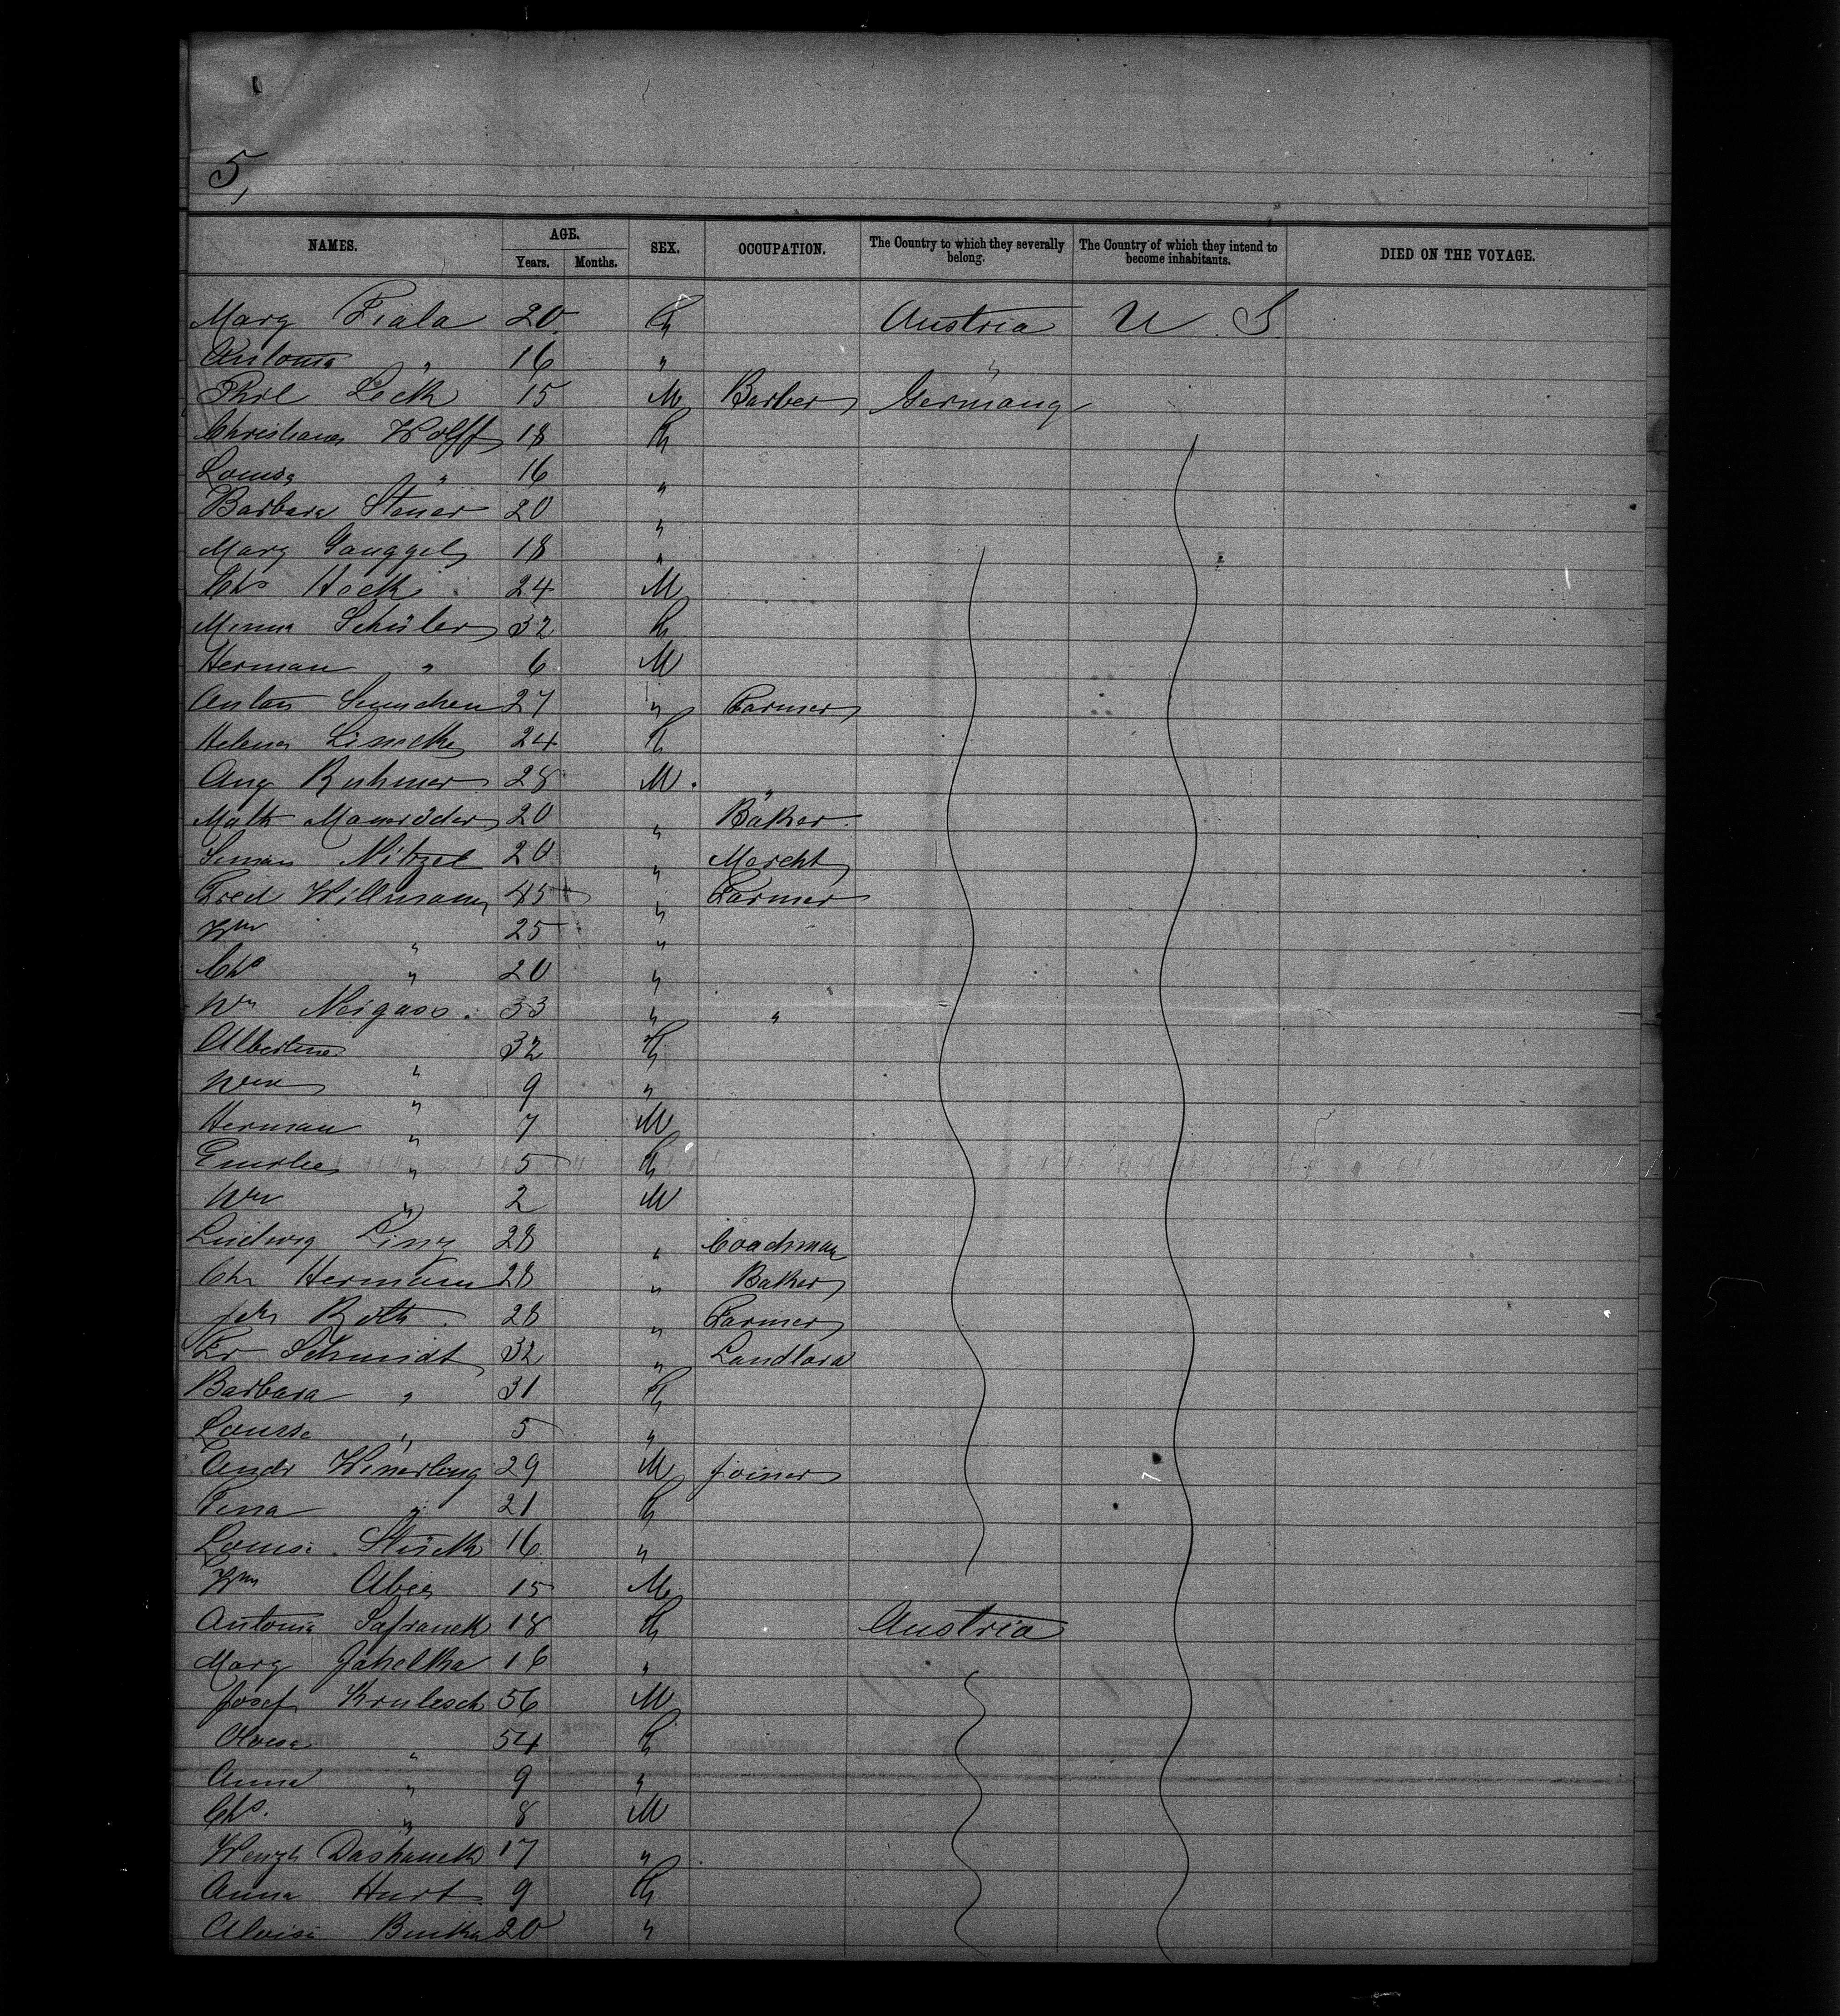 5,
NAMES. AGE. SEX. OCCUPATION. The Country to which they severally belong. The Country of which they intend to become inhabitants. DIED ON THE VOYAGE.
Years. Months.
Mary Fiala 20 F Austria U S
Antonia " 16 " "
Phil Leck 15 M Barber Germany
Christiana Wolff 18 F
Louisa " 16 "
Barbara Stener 20 "
Marg Ganggel 18 "
Chs Hock 24 M
Minna Schüler 32 F
Herman " 6 M
Anton 27 " Farmer
Helena 24 F
Aug Ruhmer 28 M "
Math 20 " Baker
Siman Nitzel 20 " Marcht
Fred Willmann 45 " Farmer
Wm " 25 "
Chs " 20 "
Wm Neigass. 33 " "
Albertine " 32 F
Wm " 9 "
Herman " 7 M
Emilie " 5 F
Wm " 2 M
Ludwig 28 " Coachman
Chr Hermann 28 " Baker
Joh Roth 28 " Farmer
Fr Schmidt 32 " Landlord
Barbara " 31 F
Louise " 5 "
Andr 29 M Joiner
" 21 F
Louise Stück 16 "
Wm 15 M
Antonia Safranek 18 F Austria
Mary Jahelka 16 "
Josef Krulesch 56 M
" 54 F
Anna " 9 "
Chs. " 8 M
Wenzl Dashanek 17 "
Anna Hurt 9 F
Aloisi 20 "